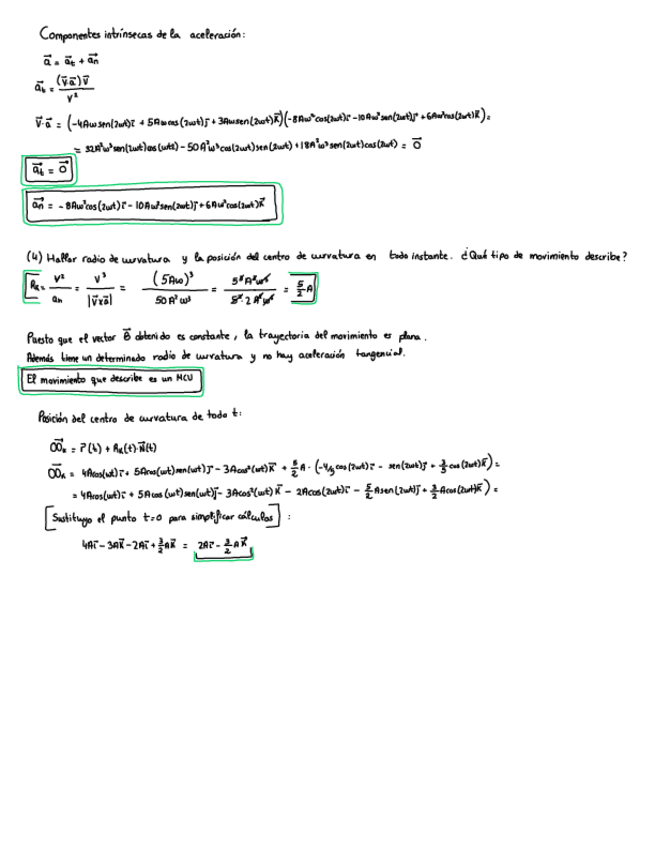 Componentes intrínsecas de la aceleración:
a⃗ = a⃗t + a⃗n
a⃗t = (v⃗·a⃗)v⃗ / v²
v⃗·a⃗ = (-4Aωsen(2ωt)i⃗ + 5Aωcos(2ωt)j⃗ + 3Aωsen(2ωt)k⃗)(-8Aω²cos(2ωt)i⃗ - 10Aω²sen(2ωt)j⃗ + 6Aω²cos(2ωt)k⃗) =
= 32A²ω³sen(2ωt)cos(ωt2) - 50A²ω³cos(2ωt)sen(2ωt) + 18A²ω³sen(2ωt)cos(2ωt) = 0⃗
a⃗t = 0⃗
a⃗n = - 8Aω²cos(2ωt)i⃗ - 10Aω²sen(2ωt)j⃗ + 6Aω²cos(2ωt)k⃗
(4) Hallar radio de curvatura y la posición del centro de curvatura en todo instante. ¿Qué tipo de movimiento describe?
RK = v²/an = v³/|v⃗×a⃗| = (5Aω)³/50A²ω³ = 5³A³ω³/5²·2A²ω³ = 5/2 A
Puesto que el vector B⃗ obtenido es constante, la trayectoria del movimiento es plana.
Además tiene un determinado radio de curvatura y no hay aceleración tangencial.
El movimiento que describe es un MCU
Posición del centro de curvatura de todo t:
OO⃗K = r⃗(t) + RK(t)·N⃗(t)
OO⃗K = 4Acos(ωt)i⃗ + 5Acos(ωt)sen(ωt)j⃗ - 3Acos²(ωt)k⃗ + 5/2 A · (-4/5 cos(2ωt)i⃗ - sen(2ωt)j⃗ + 3/5 cos(2ωt)k⃗) =
= 4Acos(ωt)i⃗ + 5Acos(ωt)sen(ωt)j⃗ - 3Acos²(ωt)k⃗ - 2Acos(2ωt)i⃗ - 5/2 Asen(2ωt)j⃗ + 3/2 Acos(2ωt)k⃗) =
[Sustituyo el punto t=0 para simplificar cálculos] :
4Ai⃗ - 3Ak⃗ - 2Ai⃗ + 3/2 Ak⃗ = 2Ai⃗ - 3/2 Ak⃗